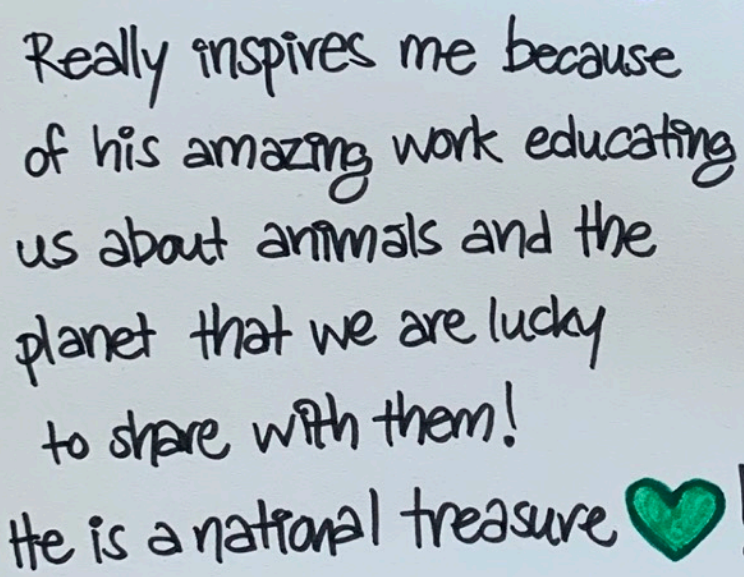 Really inspires me because
of his amazing work educating
us about animals and the
planet that we are lucky
to share with them!
He is a national treasure 💚!